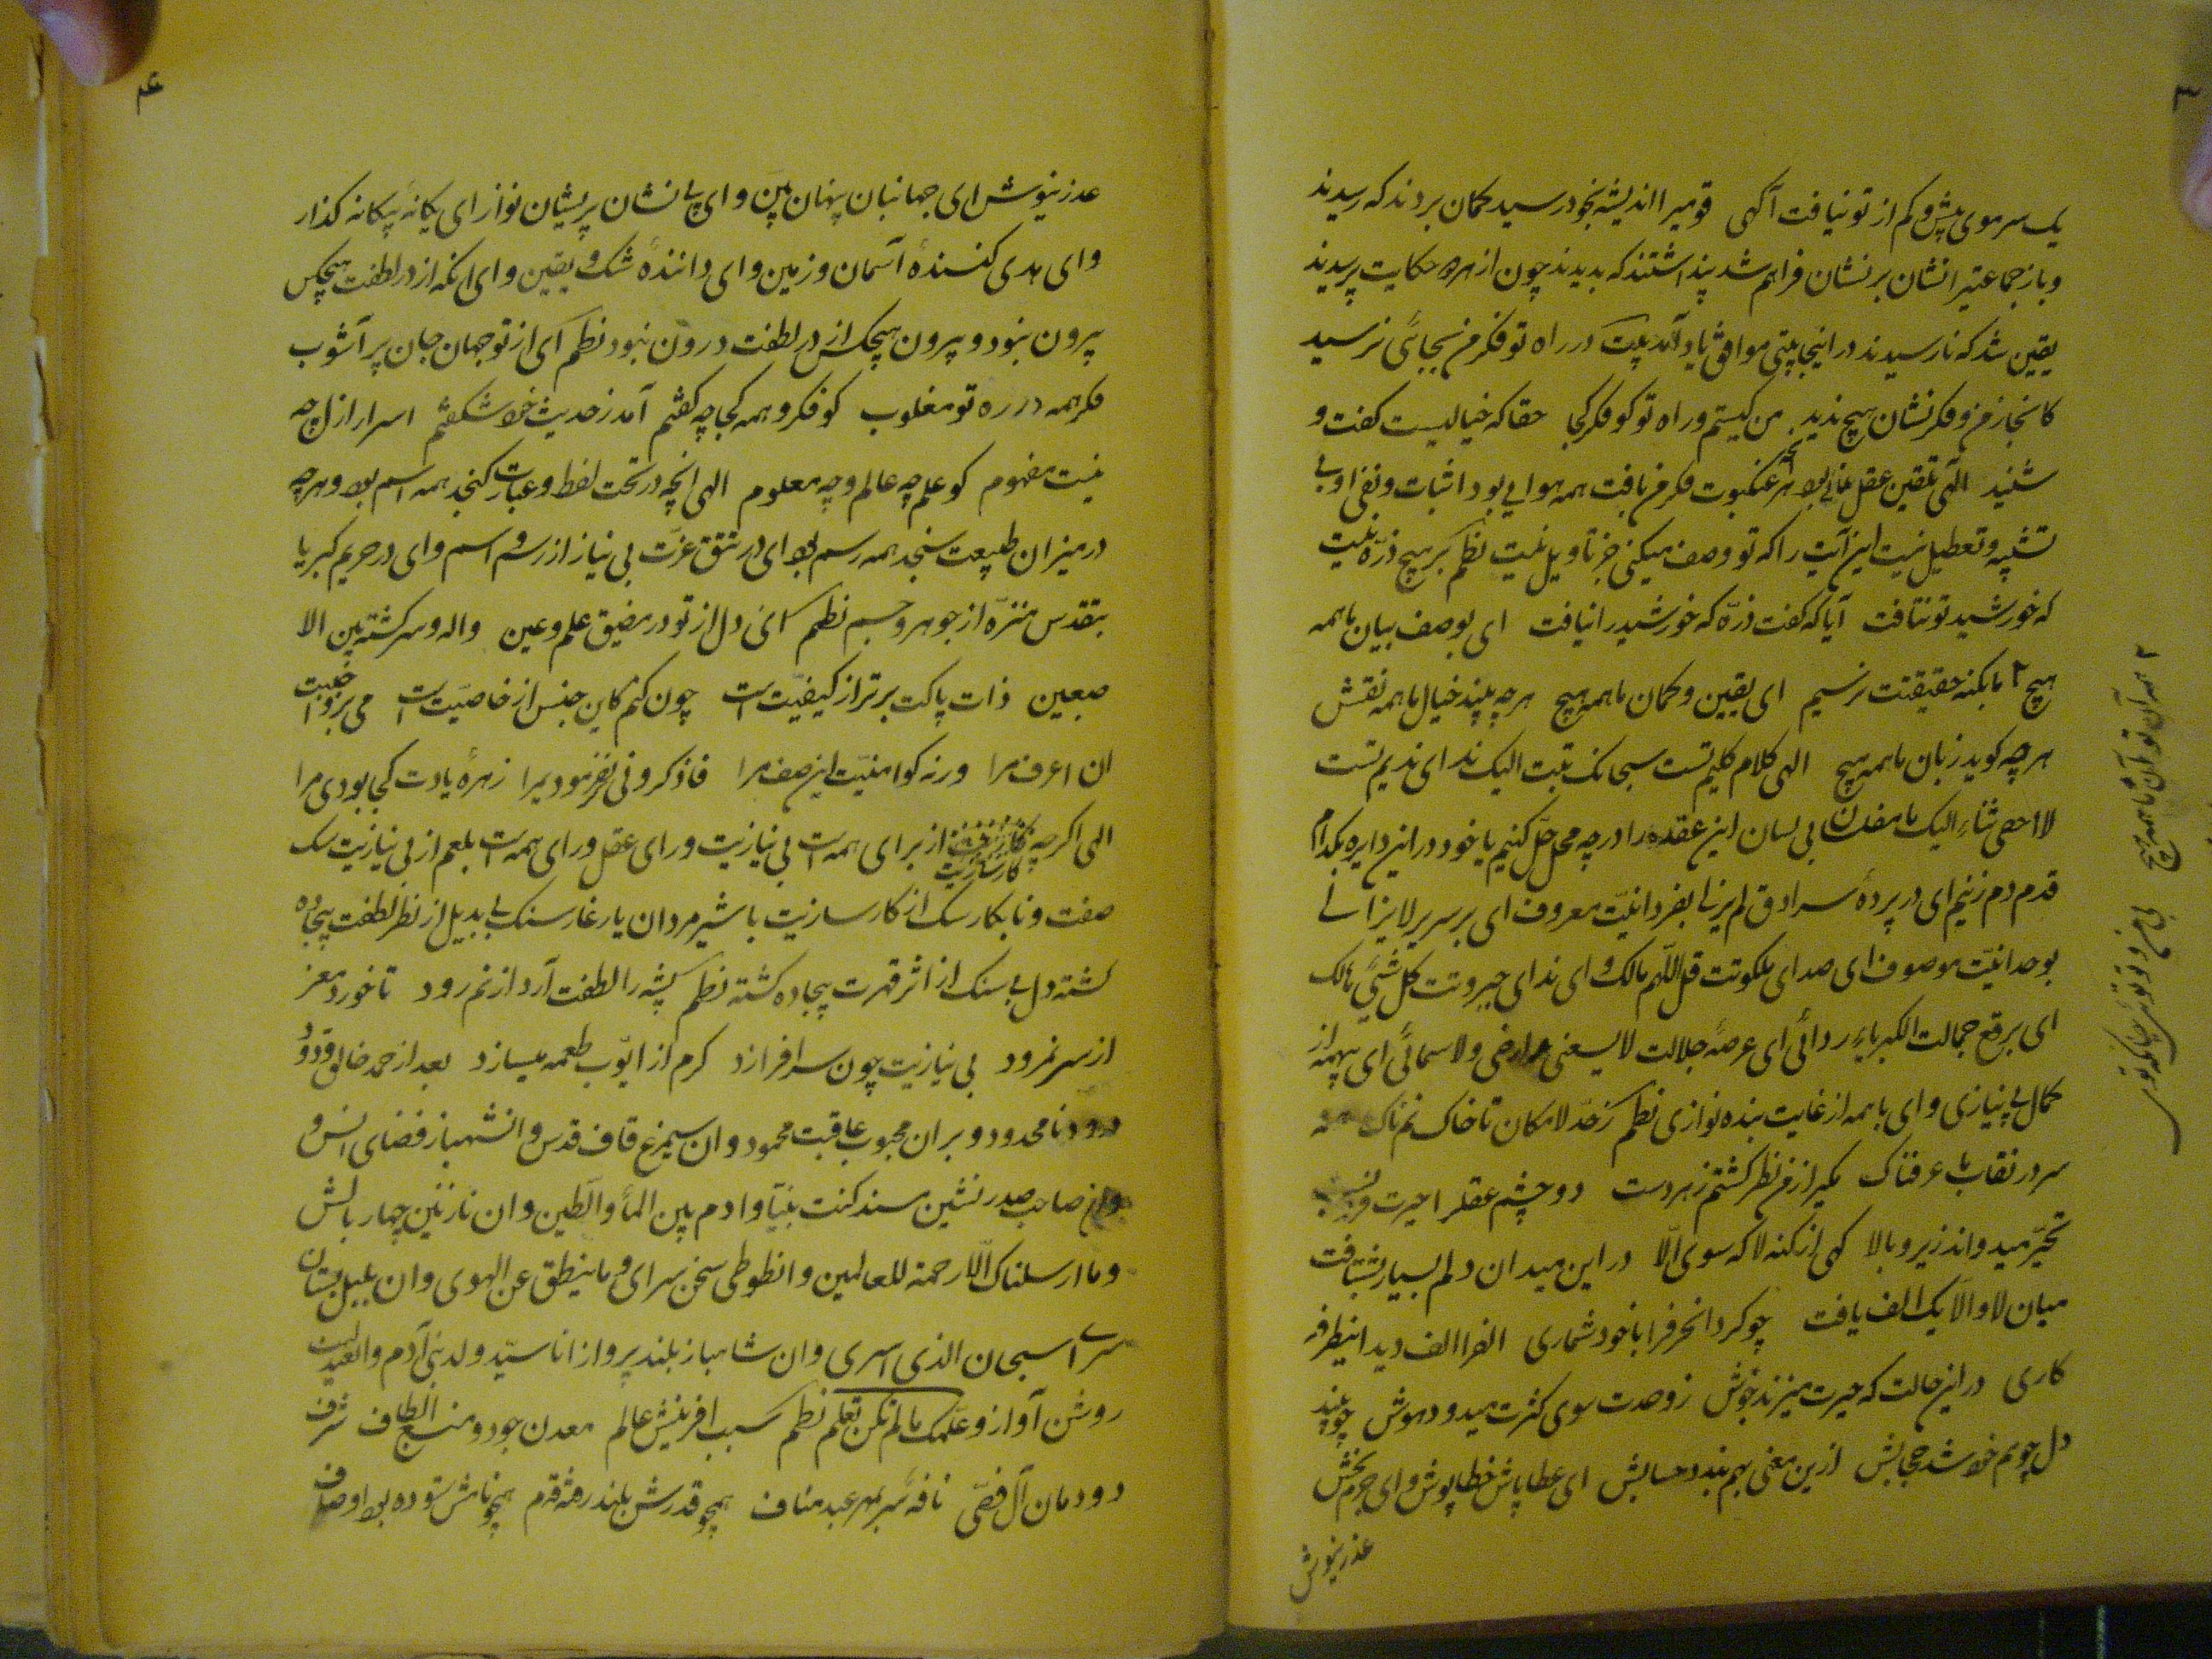 ۳
یک سر موی بیش و کم از تو نیافت آگهی قومیرا اندیشه بخود رسید گمان بردند که رسیدند
و باز جماعتیرا نشان بر نشان فراهم شد پنداشتند که بدیدند چون از هر حکایت پرسیدند
یقین شد که نارسیدند در اینجا بیتی موافق یاد آمد بیت در راه تو فکر من بجائی نرسید
کانجا ز من و فکر نشان هیچ ندید من کیستم و راه تو کو فکر کجا حقا که خیالیست گفت و
شنید الهی تلقین عقل عنکبوت فکر من بافت همه هوایی بود اثبات و نفی او بی
تشبیه و تعطیل نیست این آیت را که تو وصف میکنی جز تأویل نیست نظم بر هیچ ذرّه نیست
که خورشید تو نتافت آیا که گفت ذرّه که خورشید را نیافت ای بوصف بیان ما همه
هیچ ۲ ما بکنه حقیقتت نرسیم ای یقین و گمان ما همه هیچ هر چه بیند خیال ما همه نقش
هر چه گوید زبان ما همه هیچ الهی کلام کلیم تست سبحانک تبت الیک ندای ندیم تست
لا احصی ثناء الیک ما مفلسان بی لسان این عقده را در چه محل حلّ کنیم یا خود در این دایره بکدام
قدم دم زنیم ای در پردهٔ سرادق لم یزلی بفردانیّت معروف ای بر سریر لا یزالی
بوحدانیّت موصوف ای صدای ملکوتت قل اللّهم مالک و ای ندای جبروتت کل شئی هالک
ای برقع جمالت الکبریاء ردائی ای عرصهٔ جلالت لا یسعنی ارضی و لا سمائی ای بیهمه از
کمال بی نیازی و ای با همه از غایت بنده نوازی نظم ز حدّ لامکان تا خاک نمناک
سر در نقاب ما عرفناک بگیر از من نظر گشتم ز هر دست دو چشم عقل را حیرت
تحیّر میدواند زیر و بالا گهی از کنه لا گه سوی الّا در این میدان دلم بسیار بشتافت
میان لا و الّا یک الف یافت چو کرد آخر فرا با خود شماری الف را الف دید اینطرفه
کاری در این حالت که حیرت میزند جوش ز وحدت سوی کثرت میدود هوش چو بیند
دل چو هم خواشد حجابش از این معنی بهم بندد حسابش ای عطا پاش خطا پوش و ای جرم بخش
عذر نیوش
۲ همه آن تو آن ما همه هیچ
۴
عذر نیوش ای جهانبان پنهان بین و ای بی نشان پریشان نواز ای یگانهٔ بیگانه گذار
و ای هدی کنندهٔ آسمان و زمین و ای دانندهٔ شک و یقین و ای آنکه از در لطفت هیچکس
بیرون نبود و بیرون هیچکس از در لطفت درون نبود نظم ای از تو جهان جان پر آشوب
فکر همه در ره تو مغلوب کو فکر و همه کجا چه گفتم آمد ز حدیث خود شگفتم اسرار ازل چه
نیست مفهوم کو علم چه عالم و چه معلوم الهی آنچه در تحت لفظ و عبارت گنجد همه اسم بود و هر چه
در میزان طبیعت سنجد همه رسم بود ای در تتق عزّت بی نیاز از رسم و اسم و ای در حریم کبریا
بتقدس منزّه از جوهر و جسم نظم ای دل از تو در مضیق علم و عین واله و سرگشته بین الا
صبعین ذات پاکت برتر از کیفیّت است چون کنم کاین جنس از خاصیّت است می برد احببت
ان اعرف مرا ورنه کو امنیّت این صف مرا فاذکرونی نفرمودی مرا زهرهٔ یادت کجا بودی مرا
الهی اگر چه کارسازیت از برای همه است بی نیازیت ورای عقل و رای همه است بلعم از بی نیازیت سک
صفت و نابکار سک از کارسازیت با شیر مردان یار غار سنک بی بدیل از نظر لطفت بیجاده
گشته دل بی سنک از اثر قهرت بیجاده گشته نظم پشه را لطفت آرد از نم رود تا خورد مغز
از سر نمرود بی نیازیت چون سر افرازد کرم از ایّوب طعمه میسازد بعد از حمد خالق ودود
درود نامحدود بر آن محبوب عاقبت محمود و آن سیمرغ قاف قدس و آنشهباز فضای انس و
آن صاحب صدر نشین مسند کنت نبیّا و ادم بین الماء و الطین و آن نازنین چهار بالش
و ما ارسلناک الّا رحمة للعالمین و آنطوطی سخن سرای و ما ینطق عن الهوی و آن بلبل بستان
سرای سبحان الذی اسری و آن شاهباز بلند پرواز انا سیّد ولد بنی آدم و آنعندلیب
روشن آواز و علّمک ما لم تکن تعلم نظم سبب آفرینش عالم معدن جود و منبع الطاف شرف
دودمان آل قصّی نافهٔ سر بمهر عبد مناف همچو قدرش بلند رهش قدم همچو نامش ستوده بود اوصاف